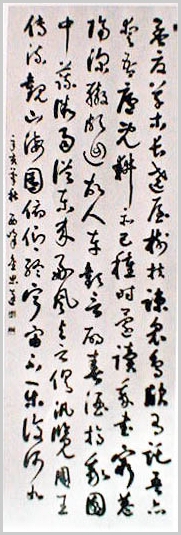 孟夏草木長遶屋樹扶疎衆鳥欣有託吾亦
愛吾廬既耕亦已種時還讀我書窮巷
隔深轍頗迴故人車歡言酌春酒摘我園
中蔬微雨從東來好風與之俱汎覽周王
傳流觀山海圖俯仰終宇宙不樂復何如
辛亥